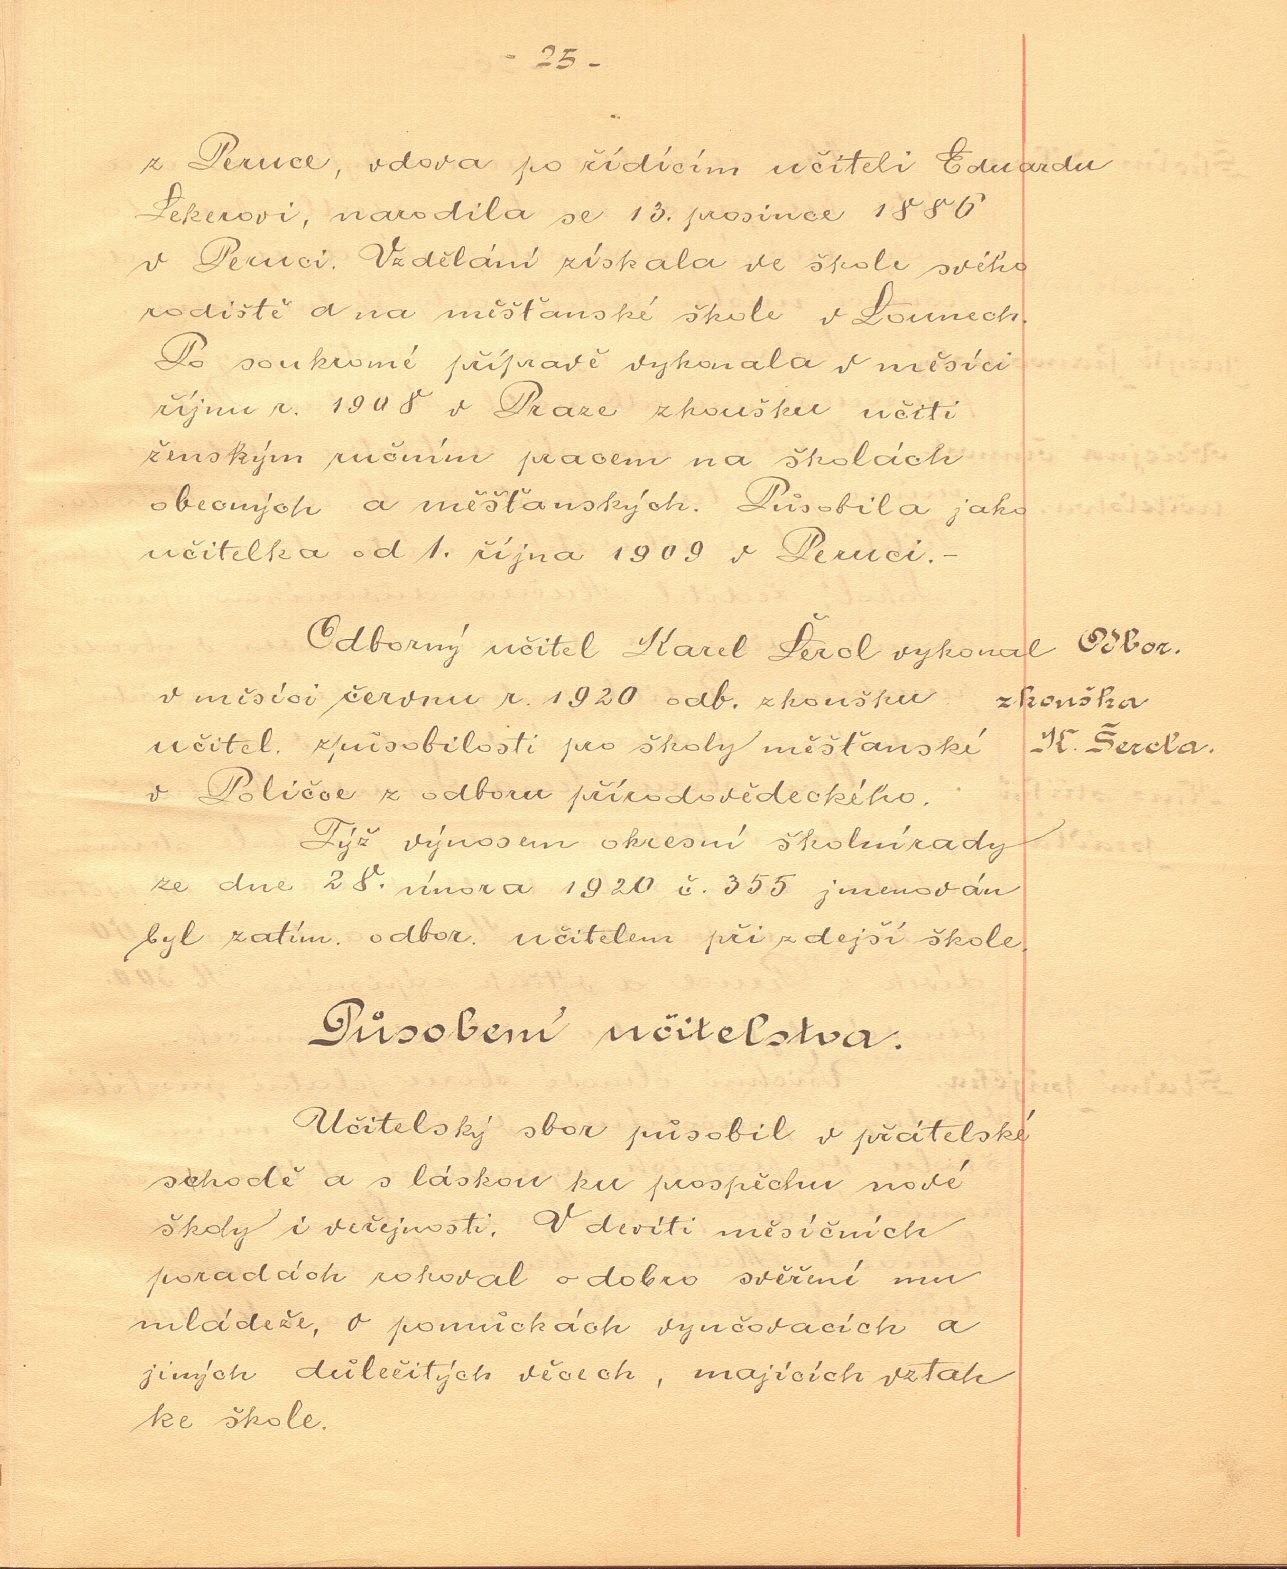 - 25 -
z Peruce, vdova po řídícím učiteli Eduardu
Lekerovi, narodila se 13. prosince 1886
v Peruci. Vzdělání získala ve škole svého
rodiště a na měšťanské škole v Lounech.
Po soukromé přípravě vykonala v měsíci
říjnu r. 1908 v Praze zkoušku učiti
ženským ručním pracem na školách
obecných a měšťanských. Působila jako
učitelka od 1. října 1909 v Peruci.-
Odborný učitel Karel Šercl vykonal
v měsíci červnu r. 1920 odb. zkoušku
učitel. způsobilosti pro školy měšťanské
v Poličce z odboru přírodovědeckého.
Odbor.
zkouška
K. Šercla.
Týž výnosem okresní školní rady
ze dne 28. února 1920 č. 355 jmenován
byl zatím. odbor. učitelem při zdejší škole.
Působení učitelstva.
Učitelský sbor působil v přátelské
schodě a s láskou ku prospěchu nové
školy i veřejnosti. V devíti měsíčních
poradách rokoval o dobro svěřené mu
mládeže, o pomůckách vyučovacích a
jiných důležitých věcech, majících vztah
ke škole.